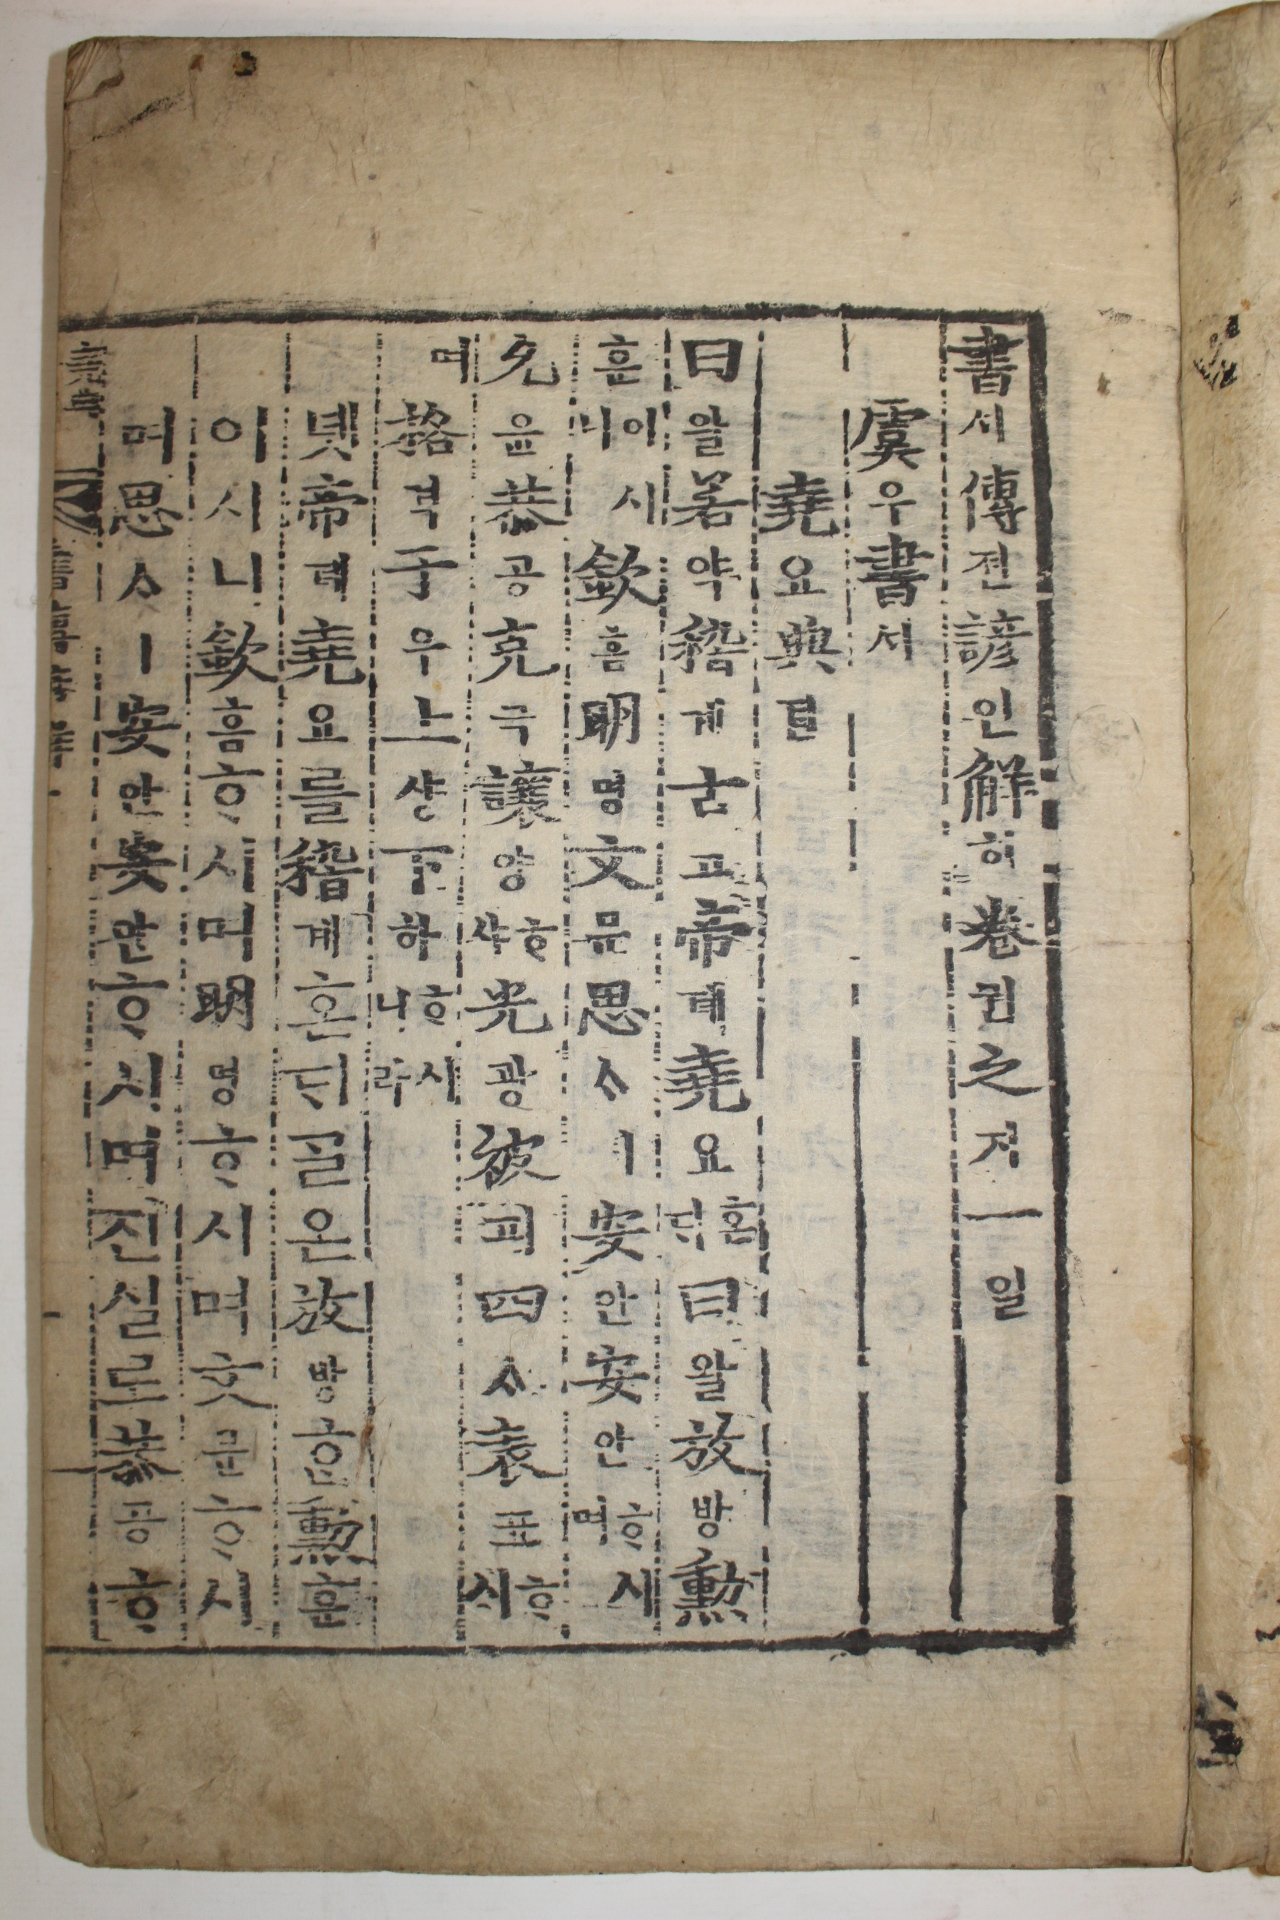 書셔傳젼諺언解ᄒᆡ卷권之지一일
虞우書셔
堯요典뎐
曰왈若약稽계古고帝뎨堯요혼ᄃᆡ曰왈放방勳
훈이시니欽흠明명文문思ᄉᆞㅣ安안安안ᄒᆞ시며
允윤恭공克극讓양ᄒᆞ샤光광被피四ᄉᆞ表표ᄒᆞ시
며格격于우上샹下하ᄒᆞ시니라
녯帝뎨堯요를稽계혼ᄃᆡ ᄀᆞᆯ온放방ᄒᆞᆫ勳훈
이시니欽흠ᄒᆞ시며明명ᄒᆞ시며文문ᄒᆞ시
며思ᄉᆞㅣ安안安안ᄒᆞ시며진실로恭공ᄒᆞ
堯典